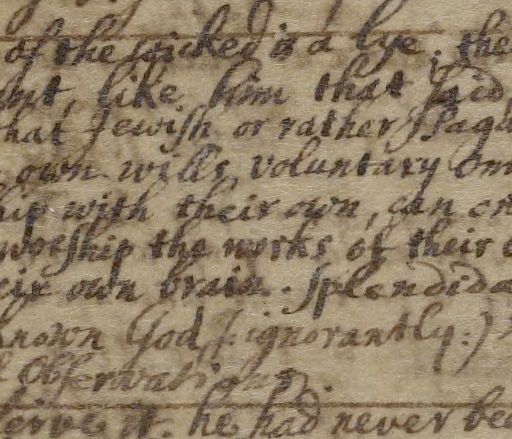 of the wicked is a lye; the
like him that said
that Jewish or rather Paga
own wills, voluntary om
hip with their own, can on
worship the works of their o
eir own brain. splendida
known God (: ignorantly:)
Observations.
serve it. he had never be